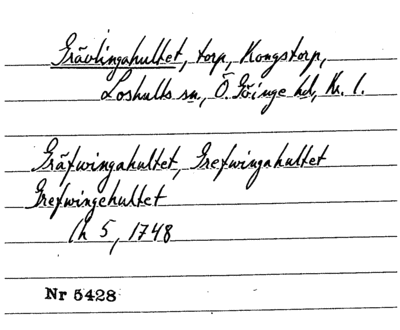 Grävlingahultet, torp, Kongstorp,
Loshults sn, Ö. Göinge hd, Kr. l.
Gräfwingahultet, Grefwingahultet
Grefwingehultet
Ch 5, 1748
Nr 5428